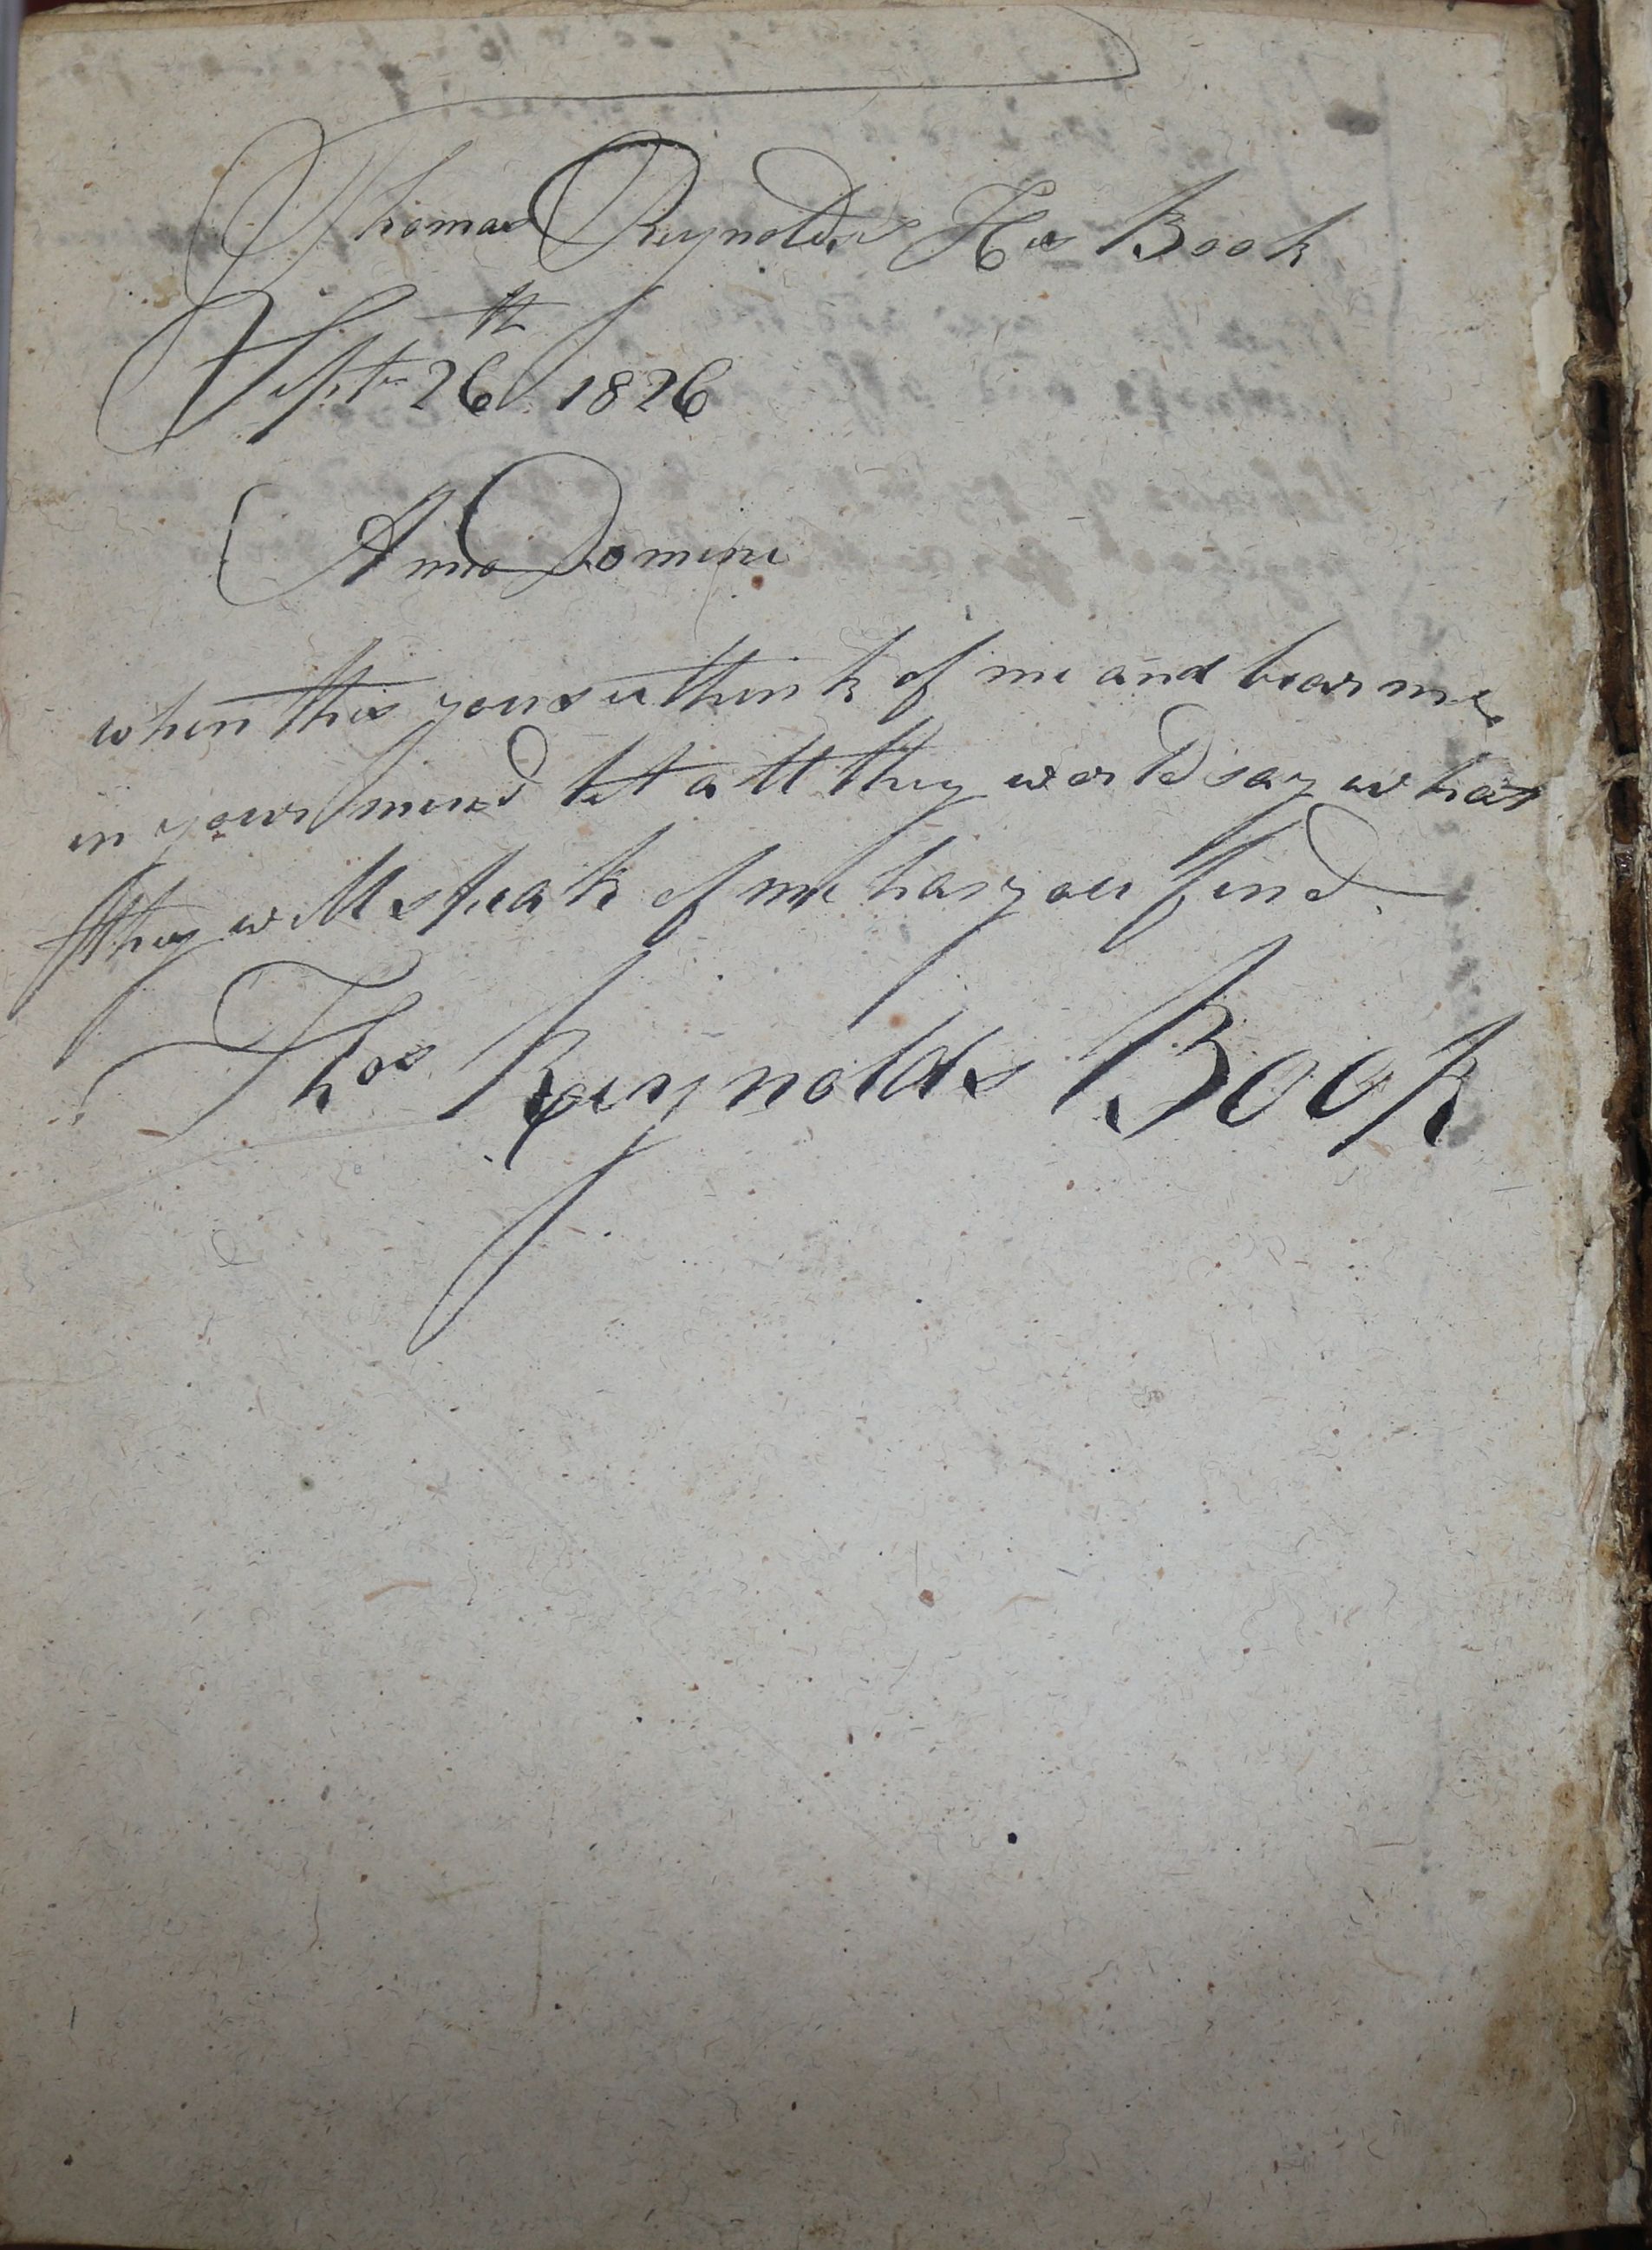 Thomas Reynolds His Book
Septr 26th 1826
Anno Domini
when this you se think of me and bear me
in your mind let all they world say what
they will speak of me has you find
Thos Reynolds Book